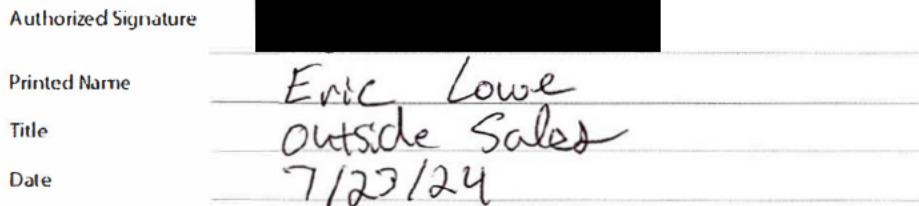 Authorized Signature
Printed Name Eric Lowe
Title Outside Sales
Date 7/23/24